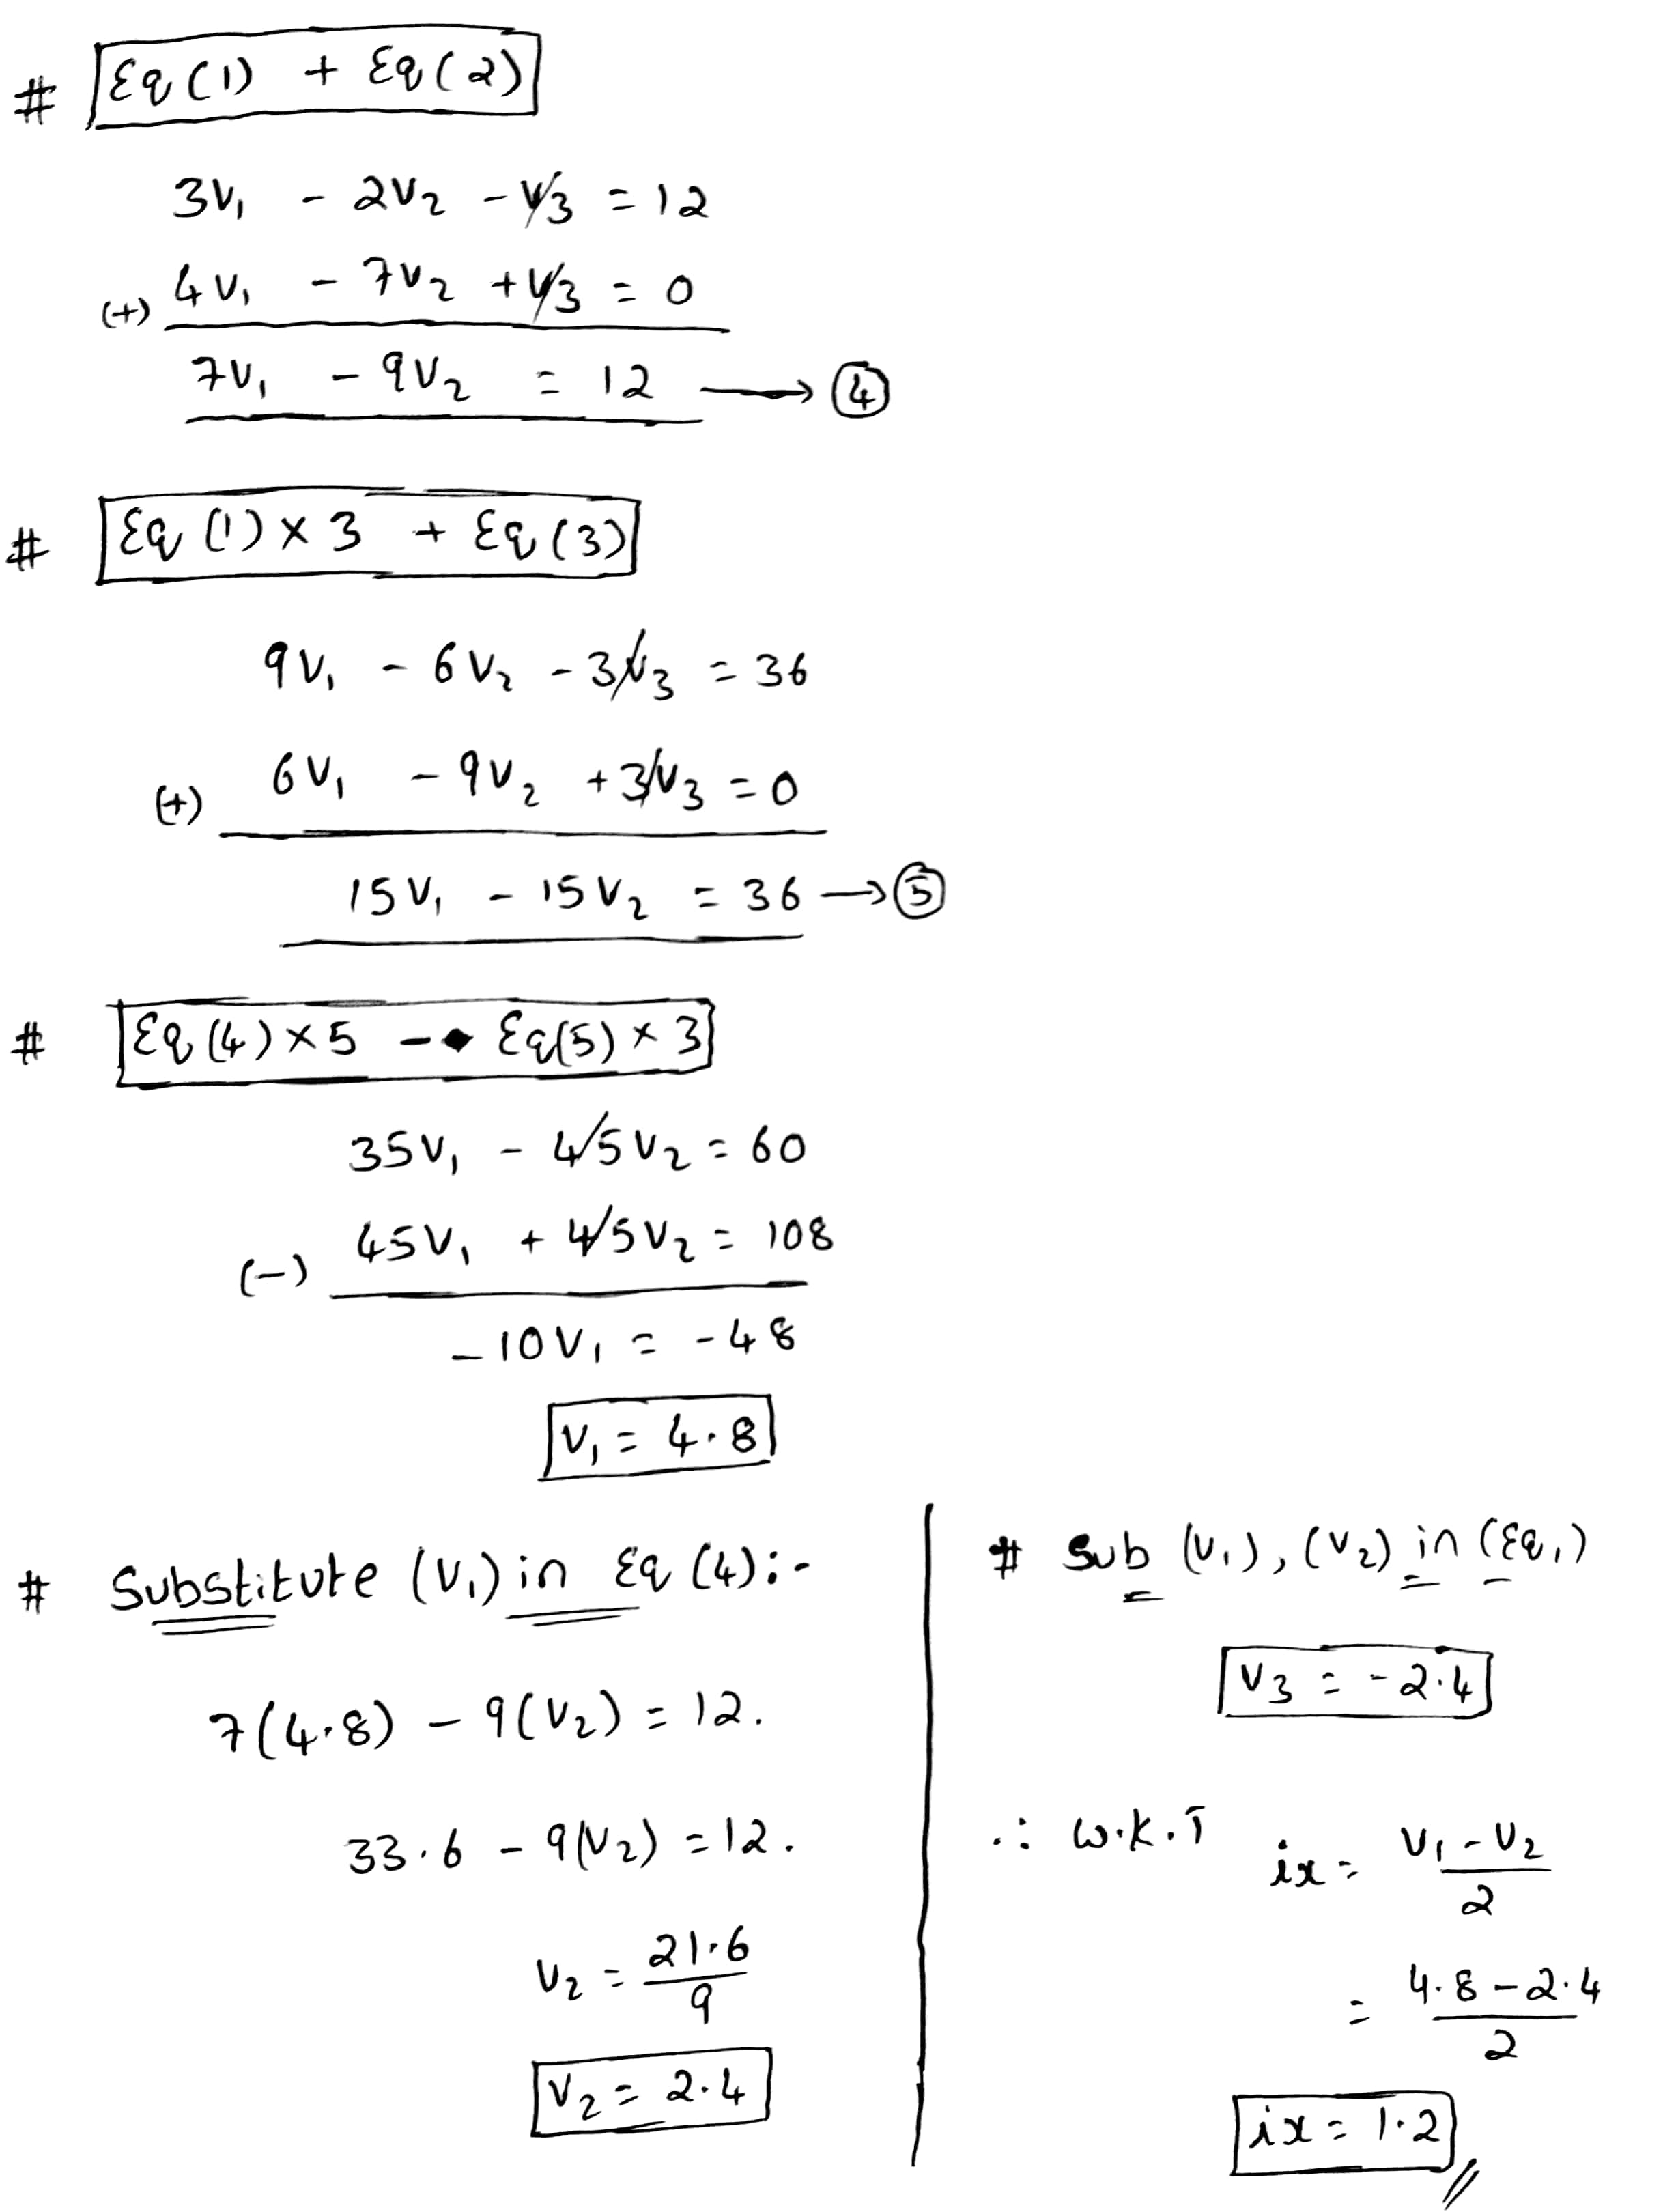 # Eq (1) + Eq (2)
3V₁ - 2V₂ - V₃ = 12
(+) 4V₁ - 7V₂ + V₃ = 0
7V₁ - 9V₂ = 12 ⟶ ④
# Eq (1) × 3 + Eq (3)
9V₁ - 6V₂ - 3V₃ = 36
(+) 6V₁ - 9V₂ + 3V₃ = 0
15V₁ - 15V₂ = 36 ⟶ ⑤
# Eq (4) × 5 - Eq(5) × 3
35V₁ - 45V₂ = 60
(-) 45V₁ + 45V₂ = 108
-10V₁ = -48
V₁ = 4.8
# Substitute (V₁) in Eq (4):-
7(4.8) - 9(V₂) = 12.
33.6 - 9(V₂) = 12.
V₂ = 21.6/9
V₂ = 2.4
# Sub (V₁), (V₂) in (Eq₁)
V₃ = -2.4
∴ W.K.T ix = (V₁ - V₂)/2
= (4.8 - 2.4)/2
ix = 1.2 //